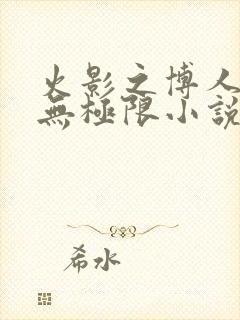 火影之博人
無極限小說
希水